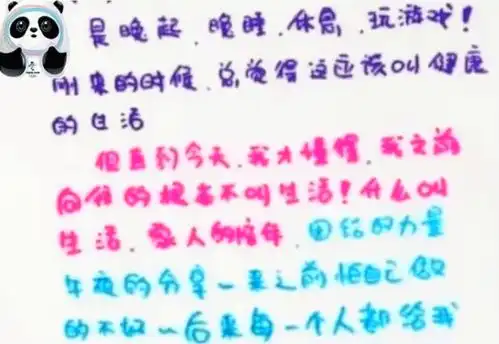 是晚起、晚睡、休息、玩游戏！
刚来的时候，总觉得这应该叫健康
的生活
但直到今天，我才懂得，我之前
向往的根本不叫生活！什么叫
生活，家人的陪伴，团结的力量
午夜的分享一来之前怕自己做
的不好一后来每一个人都给我